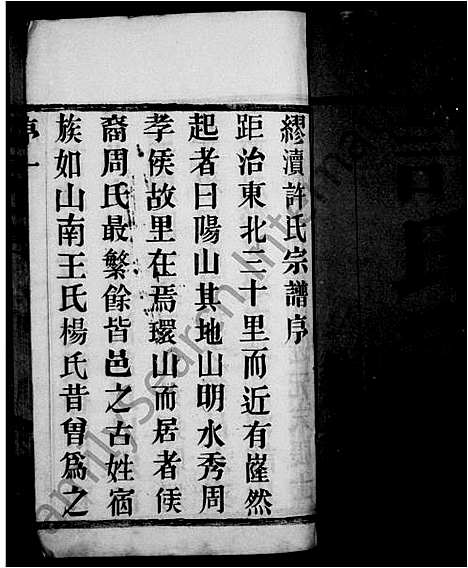 繆瀆許氏宗譜序
距治東北三十里而近有㠑然
起者曰陽山其地山明水秀周
孝侯故里在焉環山而居者侯
裔周氏最繁餘皆邑之古姓宿
族如山南王氏楊氏昔曾爲之
序一